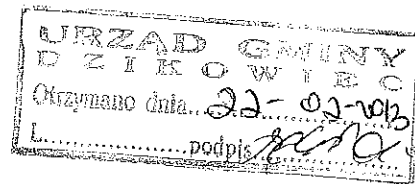 URZĄD GMINY
DZIKOWIEC
Otrzymano dnia..22-02-2013
L..................podpis